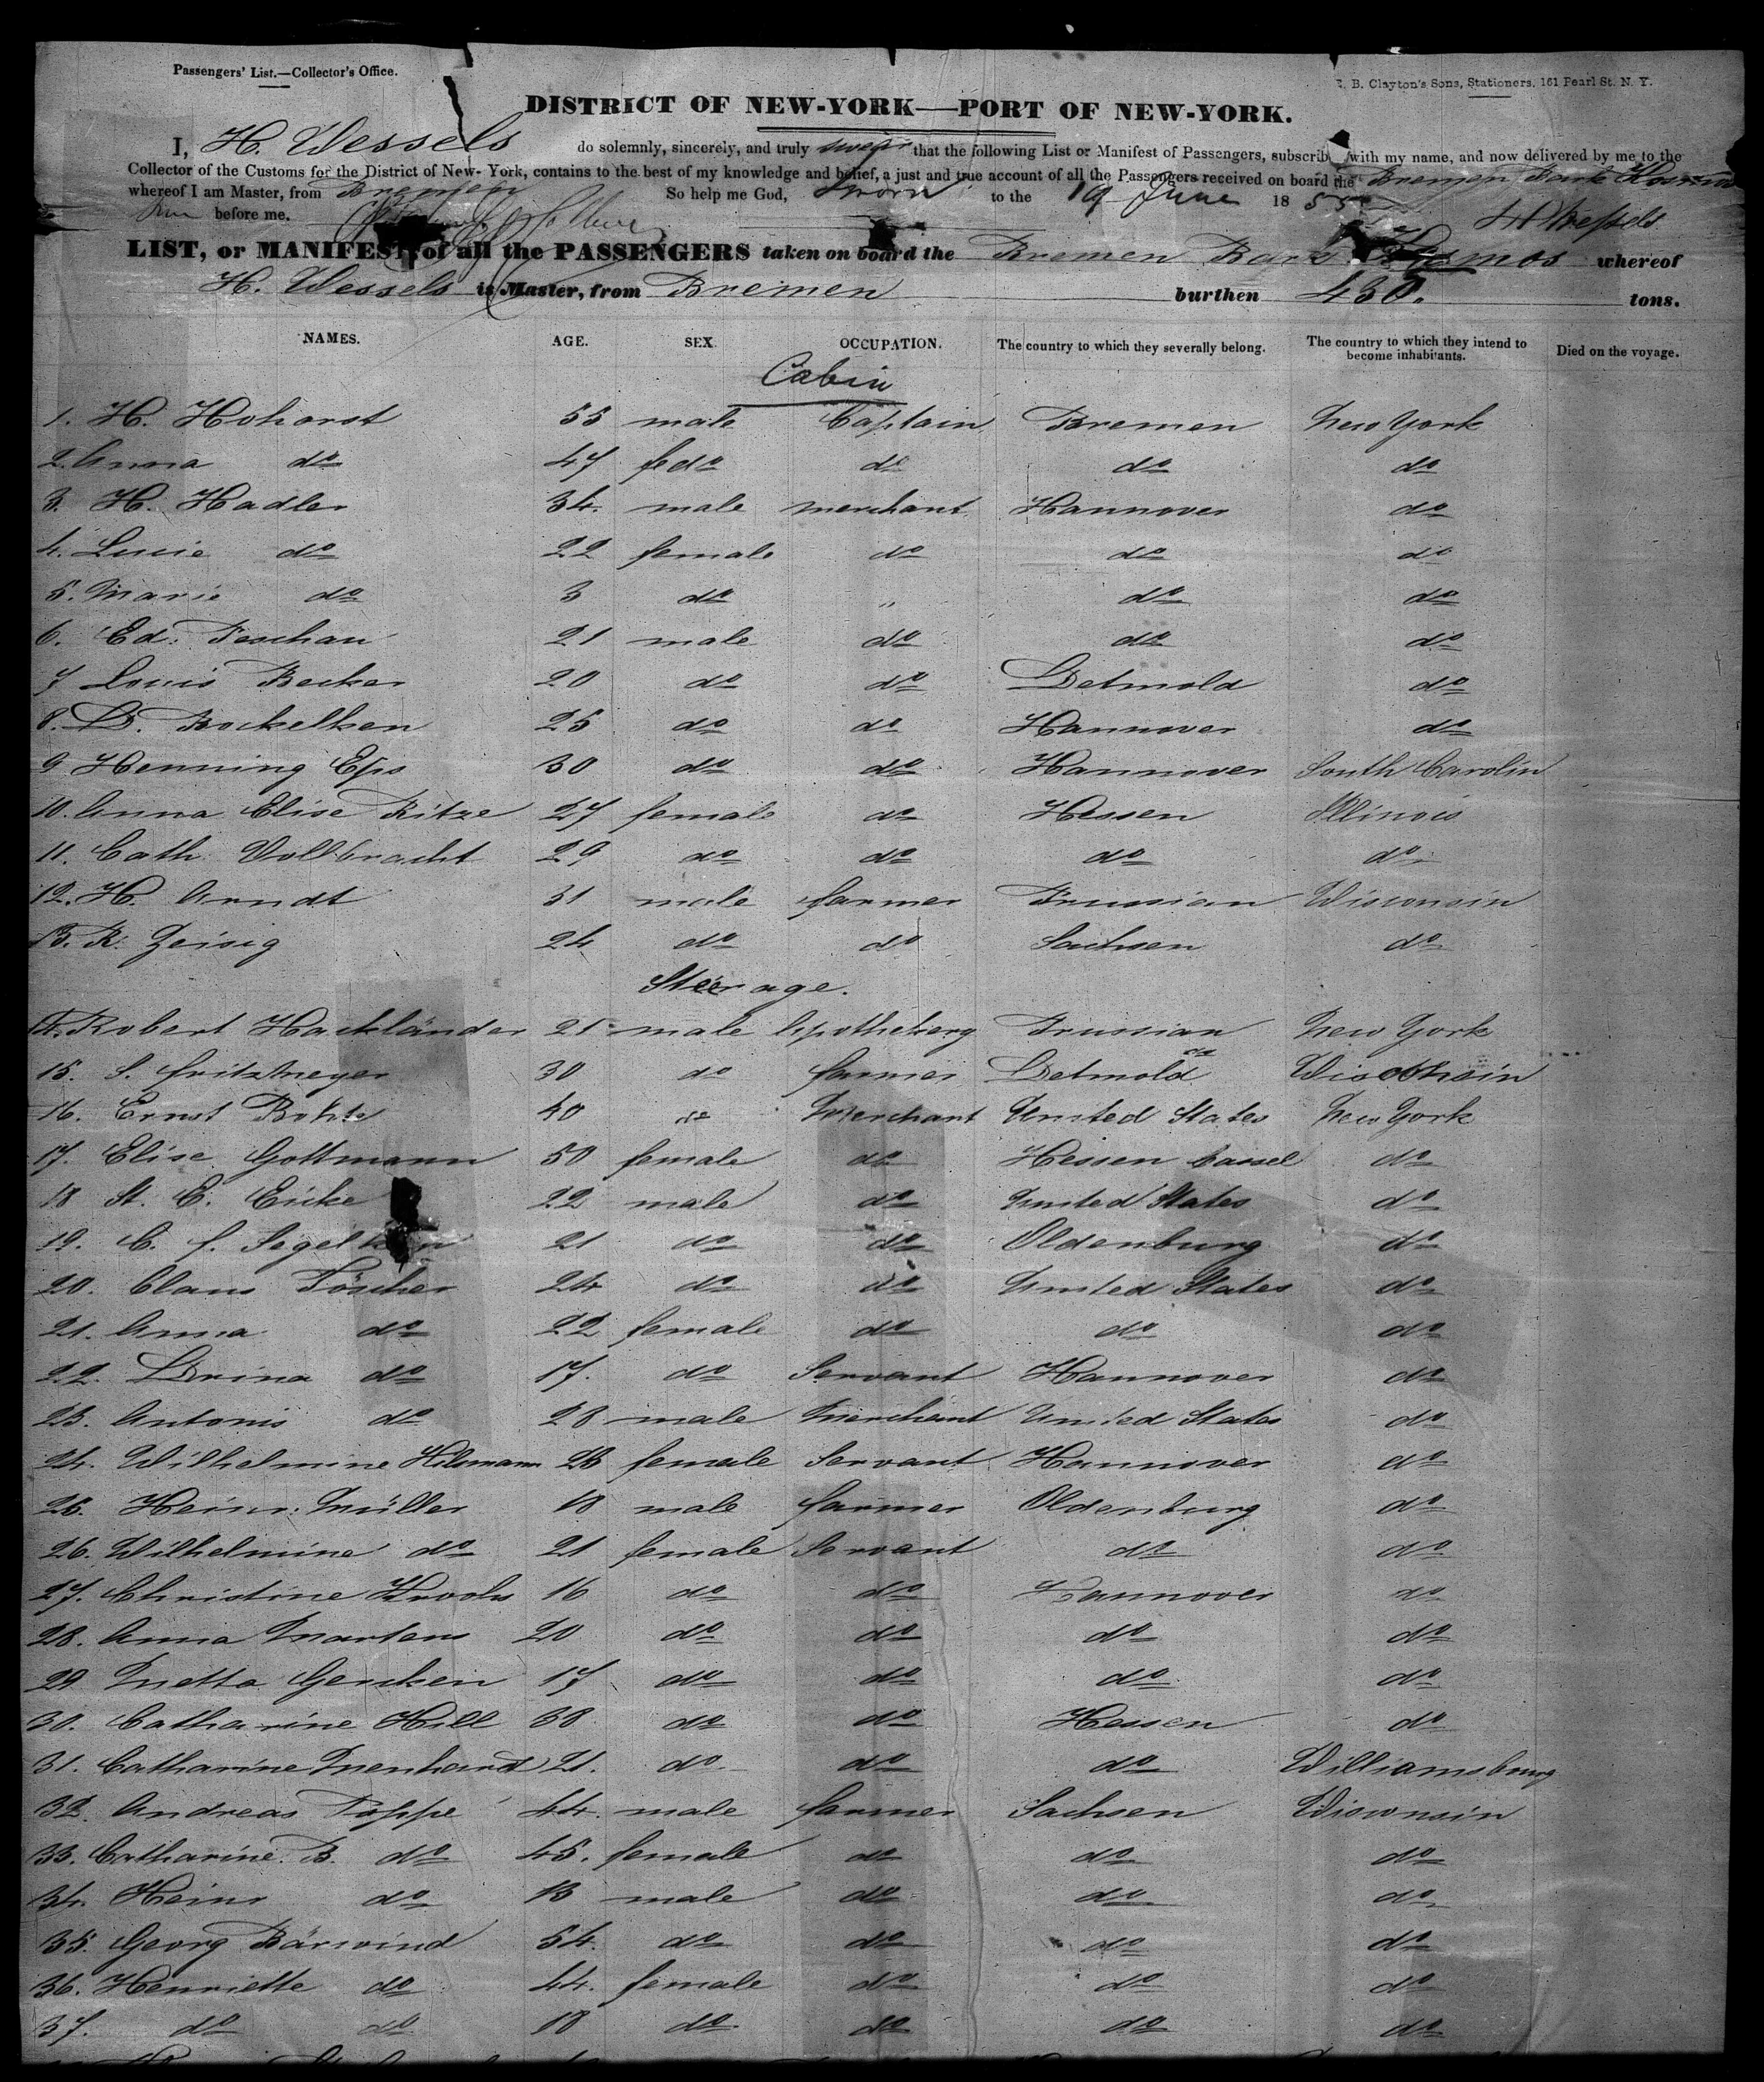 Passengers' List.—Collector's Office.
E. B. Clayton's Sons, Stationers, 161 Pearl St. N. Y.
DISTRICT OF NEW-YORK—PORT OF NEW-YORK.
I, H. Wessels do solemnly, sincerely, and truly swear that the following List or Manifest of Passengers, subscrib with my name, and now delivered by me to the
Collector of the Customs for the District of New-York, contains to the best of my knowledge and belief, a just and true account of all the Passengers received on board the Bremen Bark Kosmos
whereof I am Master, from Bremen So help me God, Sworn to the 19 June 1855
before me. H Wessels
LIST, or MANIFEST, of all the PASSENGERS taken on board the Bremen Bark Kosmos whereof
H. Wessels is Master, from Bremen burthen 430. tons.
NAMES. AGE. SEX. OCCUPATION. The country to which they severally belong. The country to which they intend to become inhabitants. Died on the voyage.
Cabin
1. H. Hohorst 55 male Captain Bremen New York
2. Anna do 47 fedo do do do
3. H. Hadler 34. male merchant Hannover do
4. Lucie do 22 female do do do
5. Marie do 3 do " do do
6. Ed. Teschau 21 male do do do
7 Louis Becker 20 do do Detmold do
8. D. Bockelken 25 do do Hannover do
9 Henning Eps 30 do do Hannover South Carolin
10. Anna Elise Ritze 27 female do Hessen Illinois
11. Cath. Vollbracht 29 do do do do
12. H. Arndt 31 male farmer Prussian Wisconsin
13. R. Zeisig 24 do do Sachsen do
Steerage.
14. Robert Hackländer 21 male Apothekerg Prussian New York
15. S. Fritzmeyer 30 do farmer Detmold Wisconsin
16. Ernst Bohte 40 do Merchant United States New York
17. Elise Gottmann 50 female do Hessen Cassel do
18 St. E. Eicke 22 male do United States do
19. C. F. Segelken 21 do do Oldenburg do
20. Claus Töscher 24 do do United States do
21. Anna do 22 female do do do
22. Drina do 17. do Servant Hannover do
23. Antonis do 28 male Merchant United States do
24. Wilhelmine Hilsmann 23 female Servant Hannover do
25. Heinr. Müller 18 male farmer Oldenburg do
26. Wilhelmine do 21 female Servant do do
27. Christine 16 do do Hannover do
28. Anna Martens 20 do do do do
29 Metta Gerken 17 do do do do
30. Catharine Hill 38 do do Hessen do
31. Catharine Menhard 21. do do do Williamsbourg
32. Andreas Poppe 44. male farmer Sachsen Wisconsin
33. Catharine B. do 45. female do do do
34. Heinr do 13 male do do do
35. Georg Bärwind 54. do do do do
36. Henriette do 44. female do do do
37. do do 18 do do do do